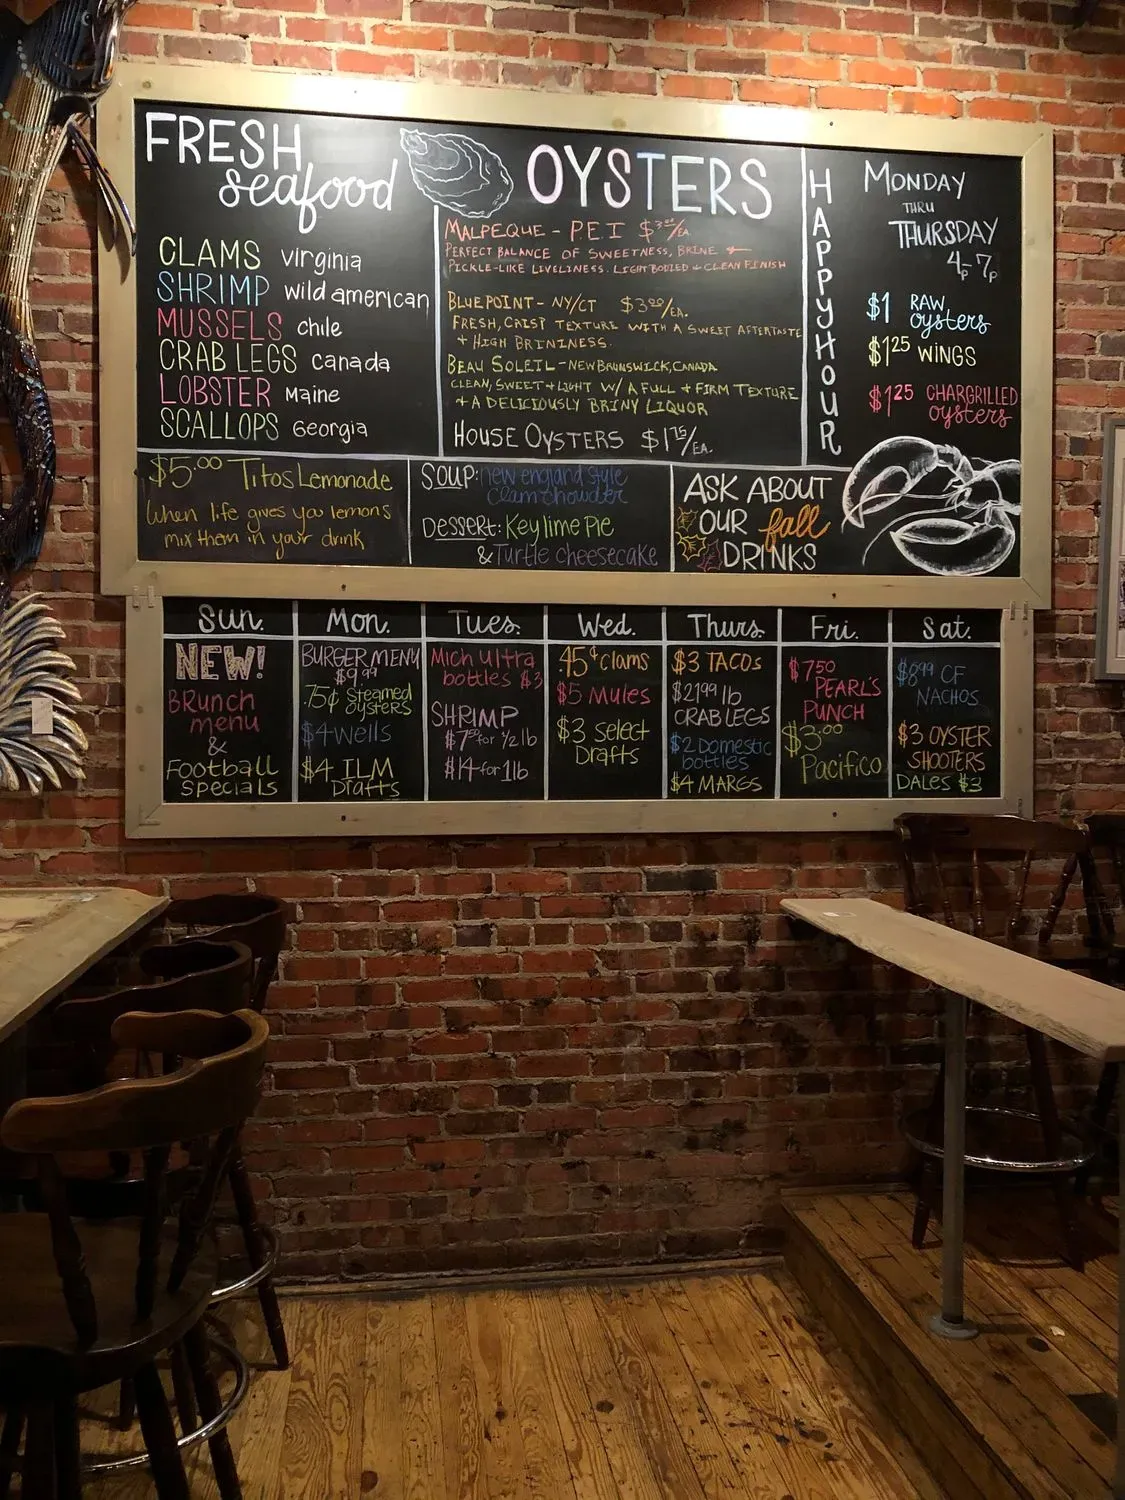 FRESH
seafood
CLAMS virginia
SHRIMP wild american
MUSSELS chile
CRAB LEGS canada
LOBSTER Maine
SCALLOPS Georgia
OYSTERS
MALPEQUE - P.E.I $3.00/EA.
PERFECT BALANCE OF SWEETNESS, BRINE +
PICKLE-LIKE LIVELINESS. LIGHT BODIED + CLEAN FINISH
BLUEPOINT - NY/CT $3.00/EA.
FRESH, CRISP TEXTURE WITH A SWEET AFTERTASTE
+ HIGH BRININESS.
BEAU SOLEIL - NEW BRUNSWICK, CANADA
CLEAN, SWEET + LIGHT W/ A FULL + FIRM TEXTURE
+ A DELICIOUSLY BRINY LIQUOR
HOUSE OYSTERS $1.75/EA.
HAPPY HOUR
MONDAY
THRU
THURSDAY
4p-7p
$1 RAW
oysters
$1.25 WINGS
$1.25 CHARGRILLED
oysters
$5.00 Titos Lemonade
when life gives you lemons
mix them in your drink
SOUP: new england style
clam chowder
DESSERT: Key lime Pie
& Turtle cheesecake
ASK ABOUT
OUR fall
DRINKS
Sun.
NEW!
BRunch
menu
&
Football
Specials
Mon.
BURGER MENU
$9.99
.75¢ Steamed
oysters
$4 Wells
$4 ILM
Drafts
Tues.
Mich Ultra
bottles $3
SHRIMP
$7.50 for 1/2 lb
$14 for 1 lb
Wed.
.45¢ clams
$5 Mules
$3 Select
Drafts
Thurs.
$3 TACOS
$21.99 lb
CRAB LEGS
$2 Domestic
bottles
$4 MARGS
Fri.
$7.50
PEARL'S
PUNCH
$3.00
Pacifico
Sat.
$8.99 CF
NACHOS
$3 OYSTER
SHOOTERS
DALES $3